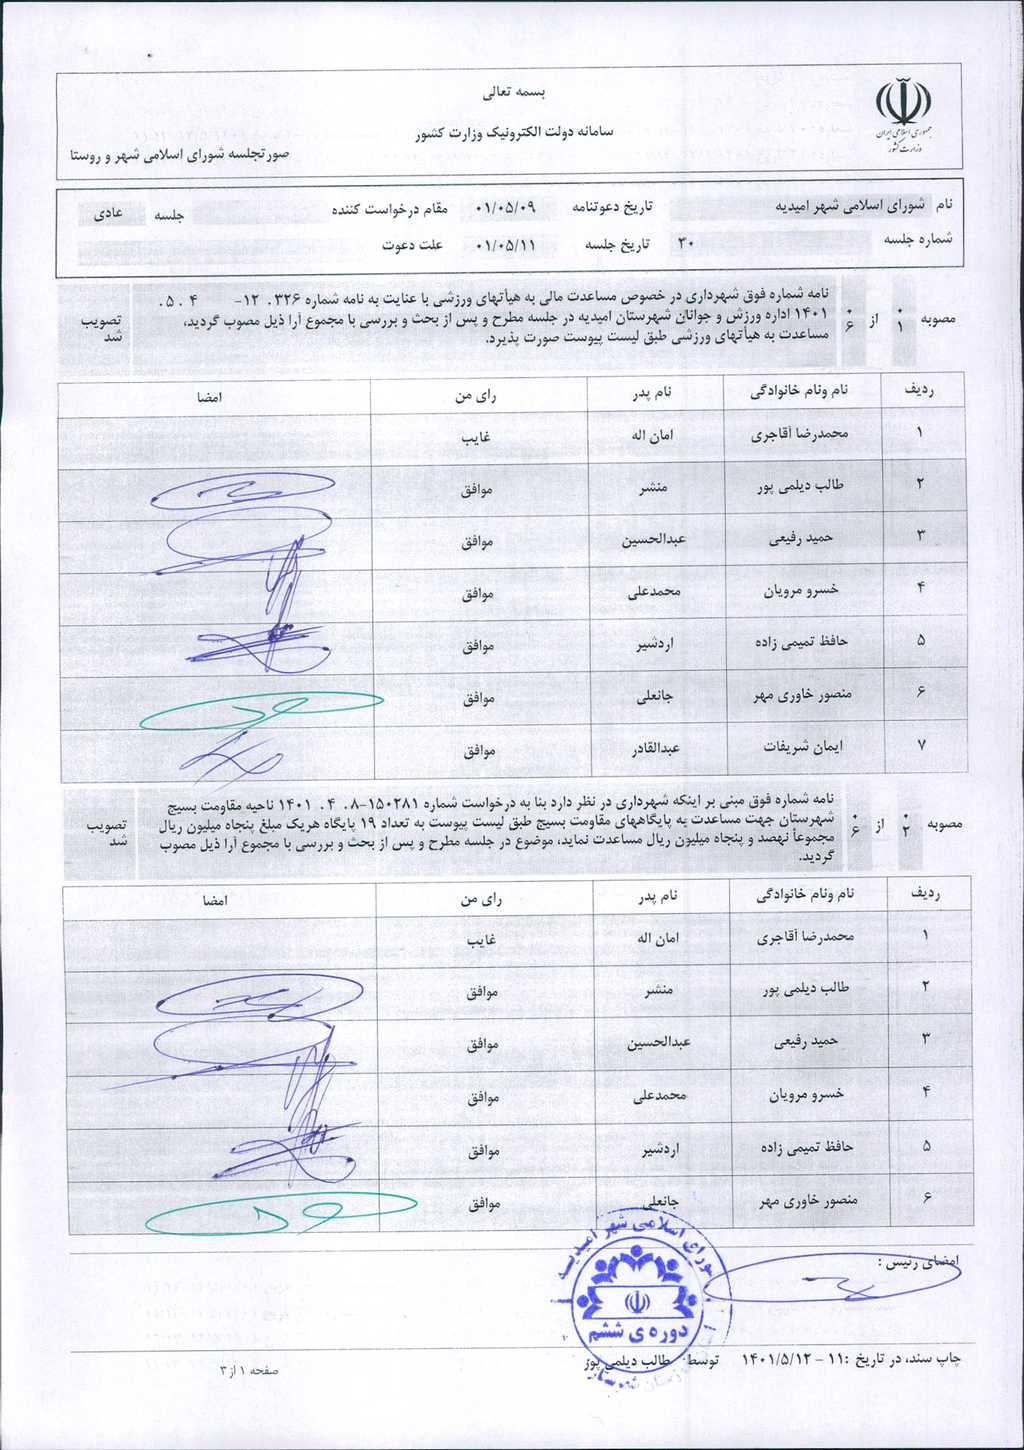 بسمه تعالی
سامانه دولت الکترونیک وزارت کشور
صورتجلسه شورای اسلامی شهر و روستا
جمهوری اسلامی ایران
وزارت کشور
نام شورای اسلامی شهر امیدیه تاریخ دعوتنامه ۰۱/۰۵/۰۹ مقام درخواست کننده جلسه عادی
شماره جلسه ۳۰ تاریخ جلسه ۰۱/۰۵/۱۱ علت دعوت
مصوبه ۰۱ از ۰۶
نامه شماره فوق شهرداری در خصوص مساعدت مالی به هیأتهای ورزشی با عنایت به نامه شماره ۳۲۶. ۱۲- ۴ .۵.
۱۴۰۱ اداره ورزش و جوانان شهرستان امیدیه در جلسه مطرح و پس از بحث و بررسی با مجموع آرا ذیل مصوب گردید،
مساعدت به هیأتهای ورزشی طبق لیست پیوست صورت پذیرد.
تصویب شد
ردیف نام ونام خانوادگی نام پدر رای من امضا
۱ محمدرضا آقاجری امان اله غایب
۲ طالب دیلمی پور منشر موافق
۳ حمید رفیعی عبدالحسین موافق
۴ خسرو مرویان محمدعلی موافق
۵ حافظ تمیمی زاده اردشیر موافق
۶ منصور خاوری مهر جانعلی موافق
۷ ایمان شریفات عبدالقادر موافق
مصوبه ۰۲ از ۰۶
نامه شماره فوق مبنی بر اینکه شهرداری در نظر دارد بنا به درخواست شماره ۱۵۰۲۸۱-۸. ۴. ۱۴۰۱ ناحیه مقاومت بسیج
شهرستان جهت مساعدت به پایگاههای مقاومت بسیج طبق لیست پیوست به تعداد ۱۹ پایگاه هریک مبلغ پنجاه میلیون ریال
مجموعاً نهصد و پنجاه میلیون ریال مساعدت نماید، موضوع در جلسه مطرح و پس از بحث و بررسی با مجموع آرا ذیل مصوب
گردید.
تصویب شد
ردیف نام ونام خانوادگی نام پدر رای من امضا
۱ محمدرضا آقاجری امان اله غایب
۲ طالب دیلمی پور منشر موافق
۳ حمید رفیعی عبدالحسین موافق
۴ خسرو مرویان محمدعلی موافق
۵ حافظ تمیمی زاده اردشیر موافق
۶ منصور خاوری مهر جانعلی موافق
امضای رئیس :
شورای اسلامی شهر امیدیه
دوره ی ششم
چاپ سند، در تاریخ :۱۱ - ۱۴۰۱/۵/۱۲ توسط: طالب دیلمی پور
صفحه ۱ از ۳